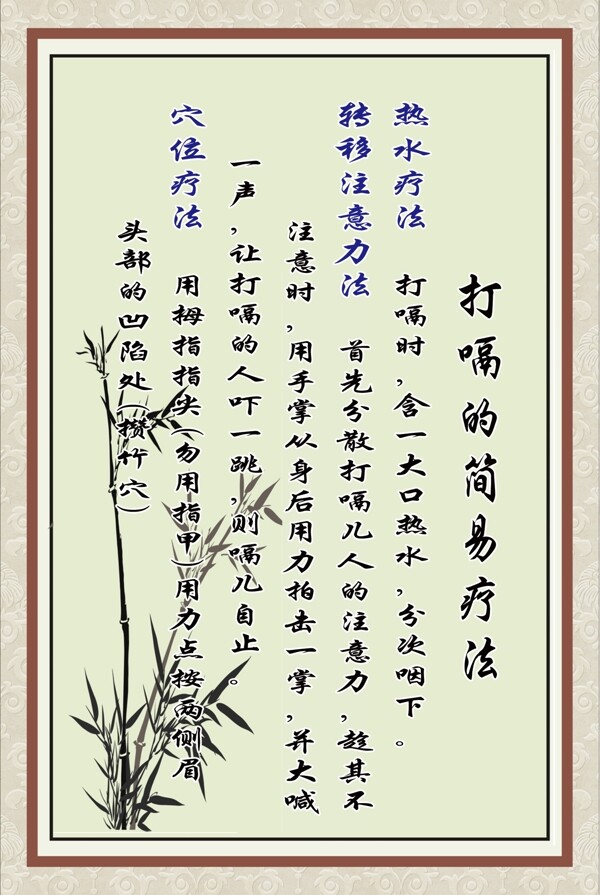 打嗝的简易疗法
热水疗法 打嗝时，含一大口热水，分次咽下。
转移注意力法 首先分散打嗝儿人的注意力，趁其不
注意时，用手掌从身后用力拍击一掌，并大喊
一声，让打嗝的人吓一跳，则嗝儿自止。
穴位疗法 用拇指指尖（勿用指甲）用力点按两侧眉
头部的凹陷处（攒竹穴）